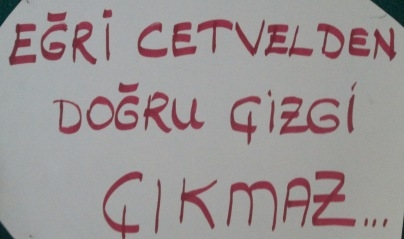 EĞRİ CETVELDEN
DOĞRU ÇİZGİ
ÇIKMAZ...